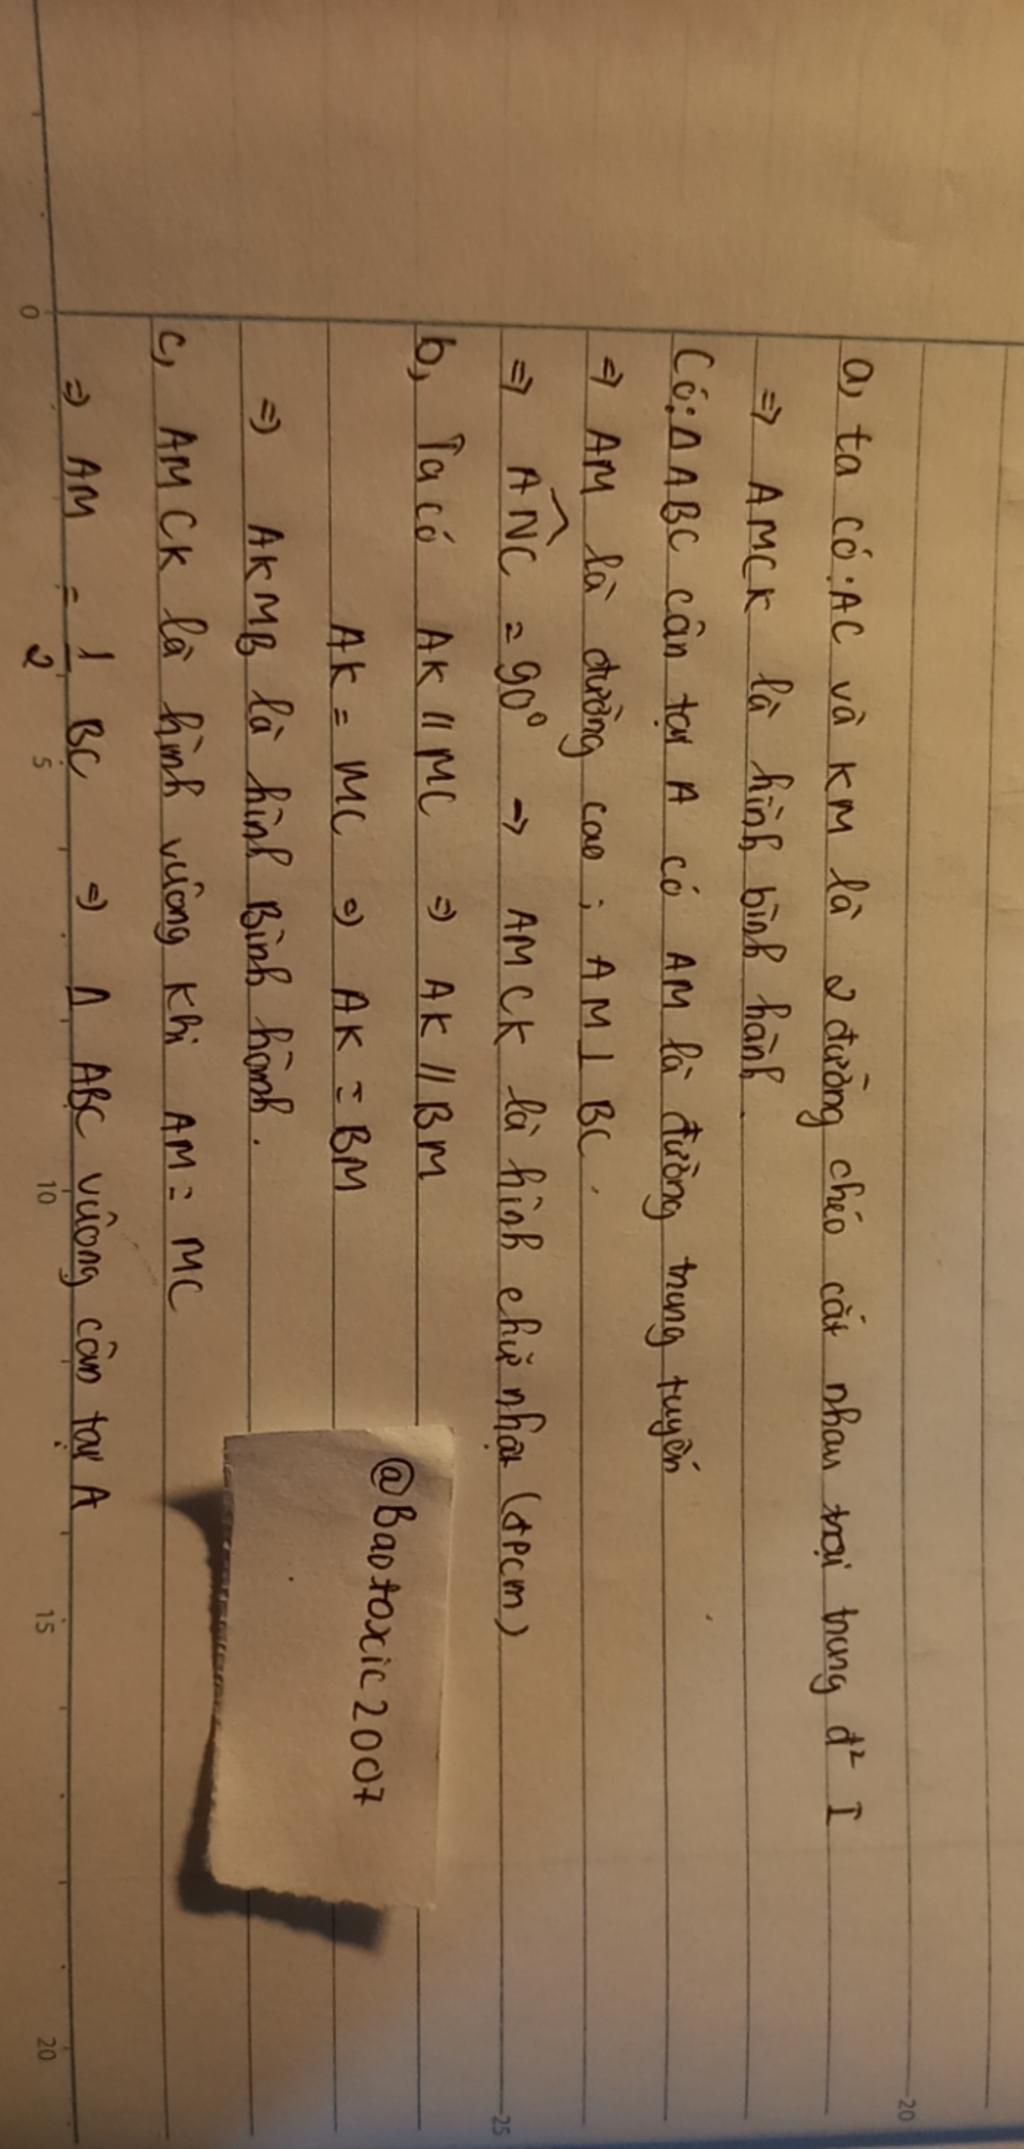 a, ta có: AC và KM là 2 đường chéo cắt nhau tại trung đ² I
⇒ AMCK là hình bình hành.
Có: Δ ABC cân tại A có AM là đường trung tuyến
⇒ AM là đường cao ; AM ⊥ BC.
⇒ ANC = 90° → AMCK là hình chữ nhật (đpcm)
b, Ta có AK // MC ⇒ AK // BM
AK = MC ⇒ AK = BM
⇒ AKMB là hình Bình hành.
c, AMCK là hình vuông khi AM = MC
⇒ AM = 1/2 BC ⇒ Δ ABC vuông cân tại A
@Baotoxic2007
0
5
10
15
20
20
25